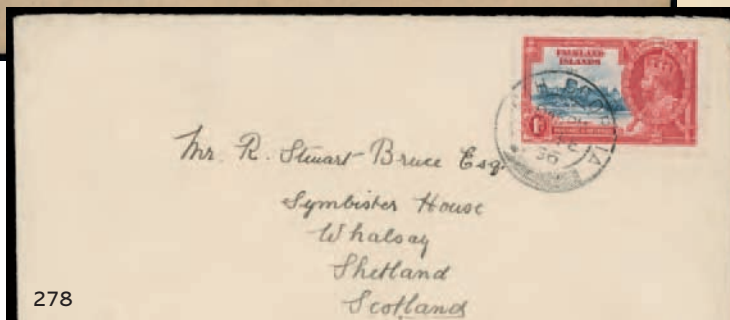 FALKLAND
ISLANDS
1D
Mr. R. Stuart-Bruce Esq.
Symbister House
Whalsay
Shetland
Scotland
278